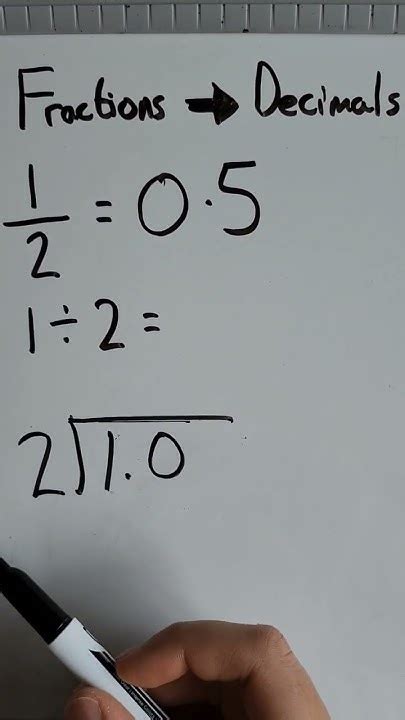 Fractions → Decimals
1/2 = 0.5
1 ÷ 2 =
2)1.0